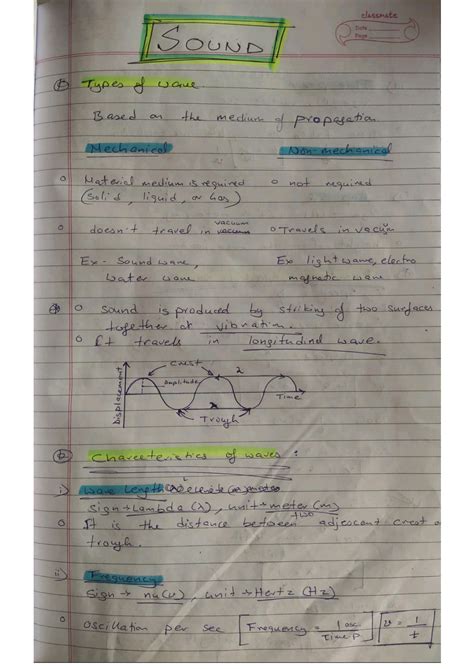 classmate
Date
Page
SOUND
① Types of wave
Based on the medium of propagation
Mechanical Non-mechanical
o Material medium is required o not required
(solid, liquid, or Gas)
vacuum
o doesn't travel in o Travels in vacuum
Ex - Sound wave, Ex light wave, electro
water wave magnetic wave
o Sound is produced by striking of two surfaces
together or vibration.
o It travels in longitudinal wave.
Displacement
Crest
λ
Amplitude
Time
λ
Trough
② Charecteristics of waves :
i) Wave Length
sign → Lambda (λ), unit → meter (m)
two
o It is the distance between adjescent crest or
trough.
ii) Frequency
Sign → nu(υ), unit → Hertz (Hz)
o Oscillation per sec [Frequency = 1 osc. / Time P] υ = 1/t